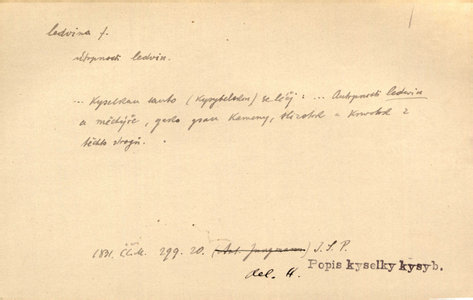 ledvina f.
útrpnosti ledvin.
... Kyselkau tauto (Kysybelskau) se léčí: ... Autrpnosti ledwin
a měchýře, gako gsau kameny, a krwotok z
těchto
1831. ČČM. 299. 20. (Ant. Jungmann) J. S. P.
del. H. Popis kyselky kysyb.